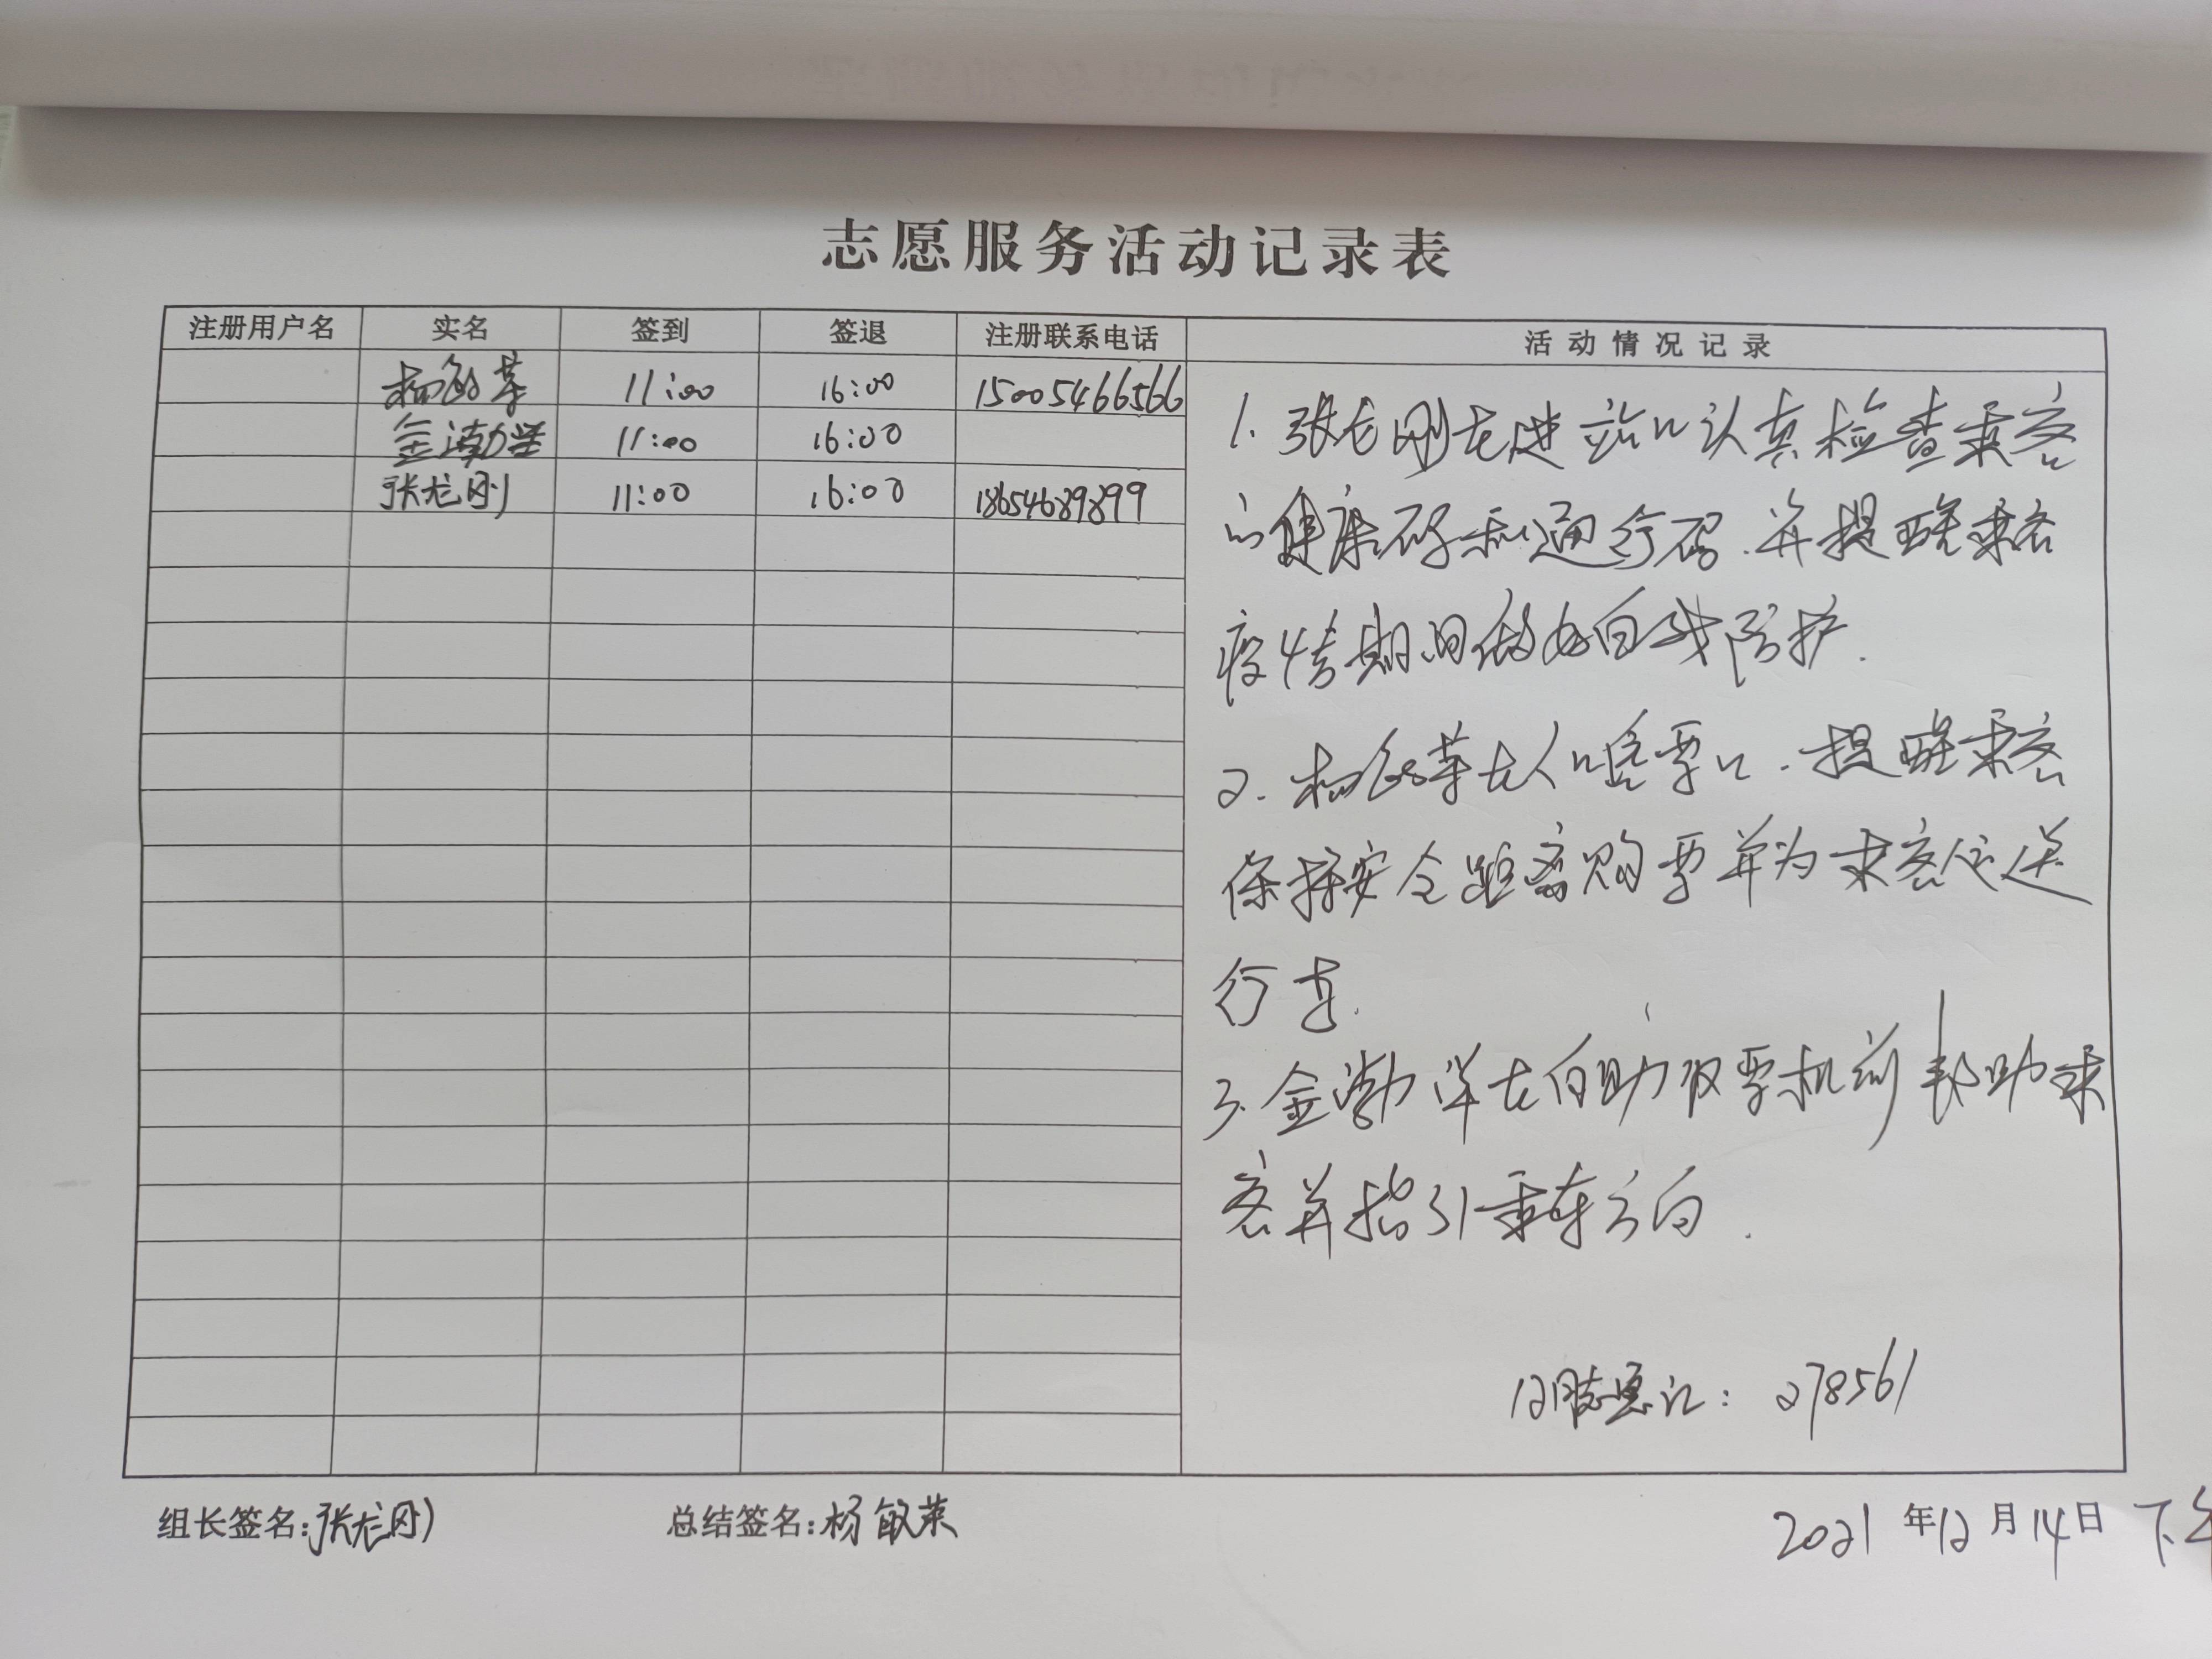 志愿服务活动记录表
注册用户名 实名 签到 签退 注册联系电话 活动情况记录
杨敏荣 11:00 16:00 15005466566
金渤洋 11:00 16:00
张尤刚 11:00 16:00 18654689899
1. 张尤刚在进站口认真检查乘客
的健康码和通行码.并提醒乘客
疫情期间做好自我防护.
2. 杨敏荣在人工售票口.提醒乘客
保持安全距离购票并为乘客运送
行李.
3. 金渤洋在自助取票机前帮助乘
客并指引乘车方向.
: 278561
组长签名:张尤刚 总结签名:杨敏荣 2021年12月14日 下午